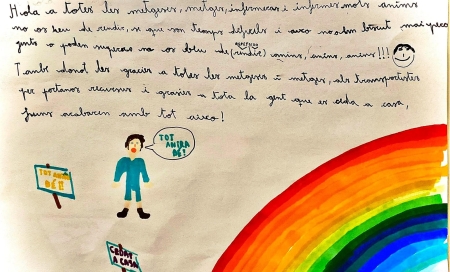 Hola a totes les metgeses, metges, infermeres i infermers molts anims
no os heu de rendir, se que son temps dificils i aixo no obm mai
gents o poden no os deu de (repeteixo) (rendir) anims, anims, anims!!!
També donol les gracies a totes les metgeses i metges, als transportistes
per portanos recursos i gracies a tota la gent que es cada a casa,
junts acabarem amb tot aixo!
TOT ANIRA BÉ!
TOT ANIRA BÉ!!
CEDAT A CASA